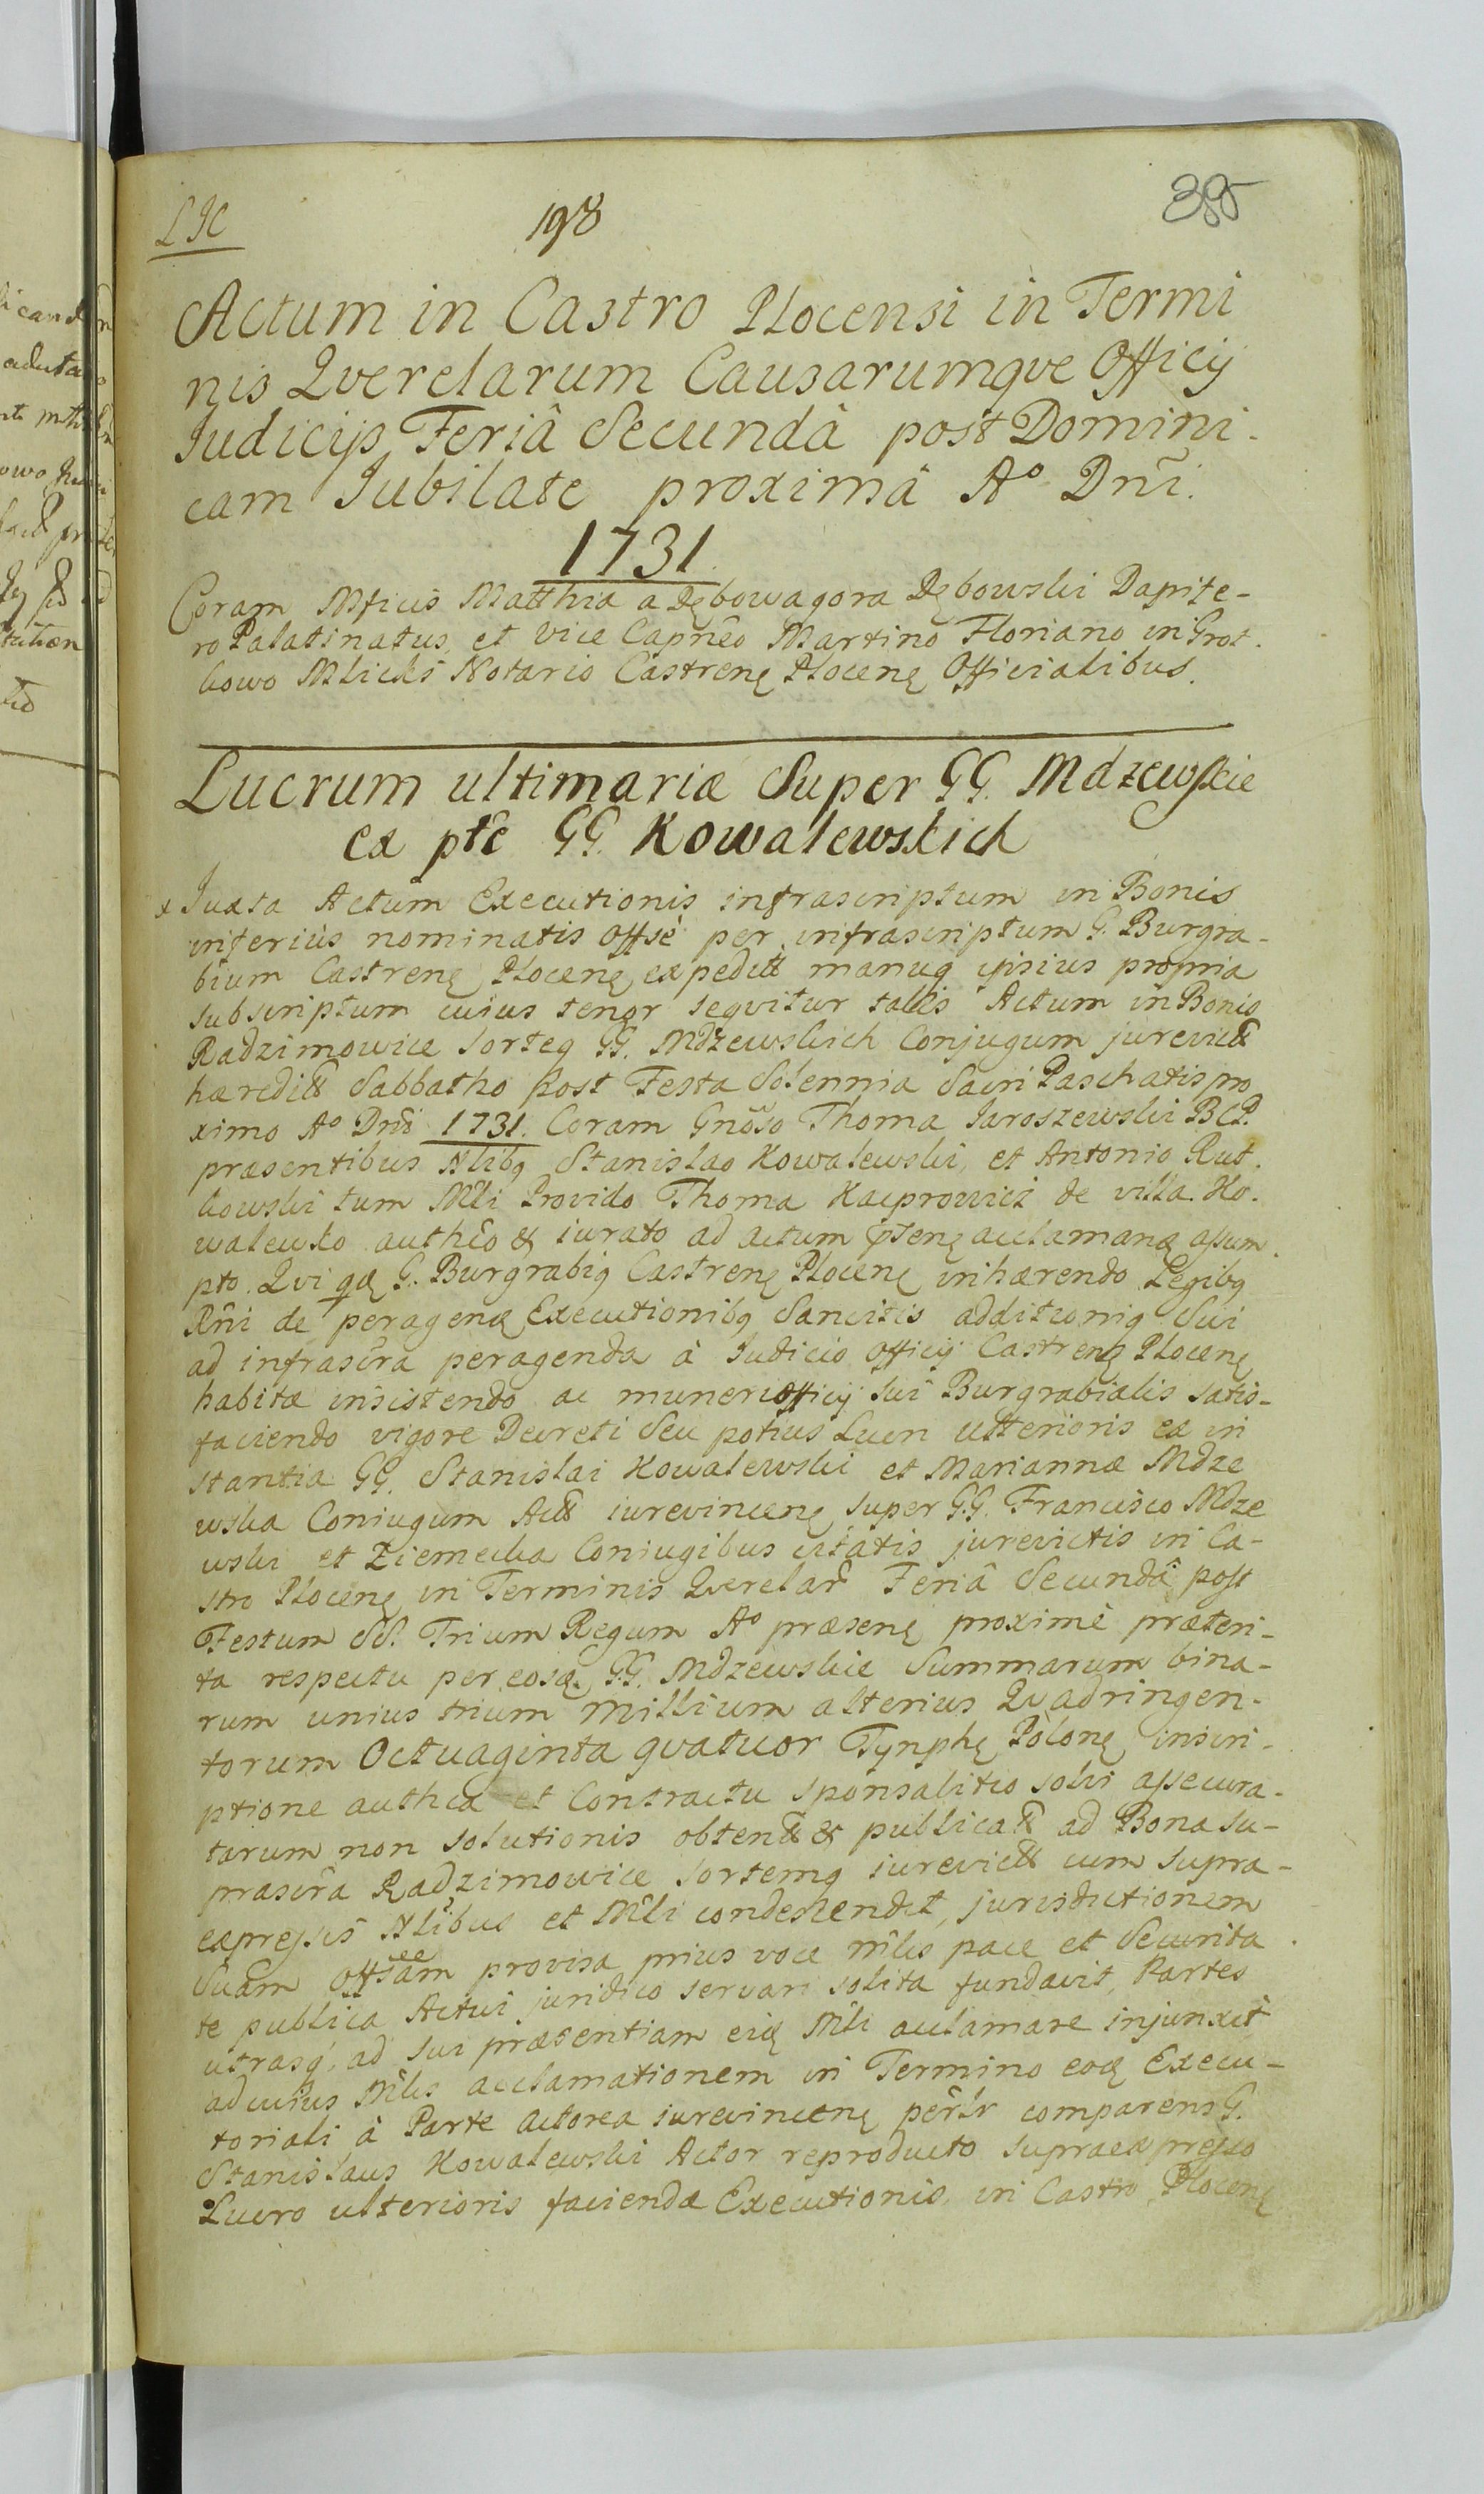 198
385
Actum in Castro Plocensi in Termi
nis Qverelarum Causarumqve Officij
Judicijs Feriâ Secundâ post Domini-
cam Jubilate proximâ Aº Dñi.
1731.
Coram Mficis Matthia a Dębowagora Dębowski Dapife-
ro Palatinatus, et Vice Capnẽo Martino Floriano in Grot-
kowo Mlicki Notario Castrenę Plocenę Officialibus.
Lucrum ultimariæ Super GG. Mdzewskie
ex ptẽ GG. Kowalewskich
x Juxta Actum Executionis infrascriptum in Bonis
inferiùs nominatis Offsè per infrascriptum G. Burgra-
bium Castrenę Plocenę expedit manuq ipsius propria
subscriptum cuius tenor seqvitur talis Actum in Bonis
Radzimowice Sorteq GG. Mdzewskich Conjugum jurevict
hæredit Sabbatho post Festa Solennia Sacri Paschatis pro
ximo Aº Dñi 1731. Coram Gnõso Thoma Jaroszewski BCP.
præsentibus Nlibq Stanislao Kowalewski, et Antonio Rut-
kowski tum Mli Provido Thoma Kacprowicz de villa Ko-
walewko authẽo & iurato ad actum pſenę acclamanę aſsum-
pto. Qvi qę G. Burgrabiq Castrenę Plocenę inhærendo Legibq
Rñi de peragenę Executionibq Sancitis additioniq Sui
ad infrascra peragenda à Judicio Officij Castrenę Plocenę
habitæ insistendo ac muneri Officij sui Burgrabialis satis-
faciendo vigore Decreti Seu potius Lucri ulterioris ex in
stantia GG. Stanislai Kowalewski et Mariannæ Mdze
wska Coniugum Act iurevincenę super GG. Francisco Mdze
wski et Ziemecka Coniugibus citatis jurevictis in Ca-
stro Plocenę in Terminis Qverelar Feriâ Secundâ post
Festum SS. Trium Regum Aº præsenę proximè præteri-
ta respectu per eosdę GG. Mdzewskie Summarum bina-
rum unius trium Millium alterius Qvadringen-
torum Octuaginta qvatuor Tynphę Polonę inscri-
ptione authca et Contractu sponsalitio solvi aſsecura-
tarum non solutionis obtent & publicat ad Bona su-
prascra Radzimowice sortemq iurevict cum supra-
expreſsis Nlibus et Mli condescendit, jurisdictionem
Suam Offsam provisa prius voce Mlis pace et Securita
te publica Actui juridico servari solita fundavit, Partes
utrasq, ad sui præsentiam eiq Mli acclamare injunxit
ad cuius Mlis acclamationem in Termino eoq Execu-
toriali à Parte Actorea iurevincenę persr comparens G.
Stanislaus Kowalewski Actor reproducto supraexpreſso
Lucro ulterioris faciendæ Executionis, in Castro Plocenę